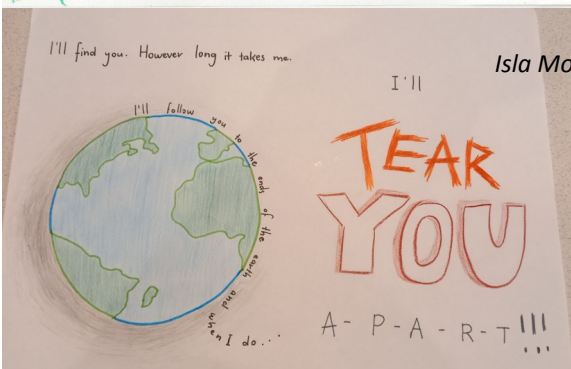 I'll find you. However long it takes me.
I'll follow you to the ends of the earth and when I do...
Isla Mo
I'll
TEAR
YOU
A-P-A-R-T!!!